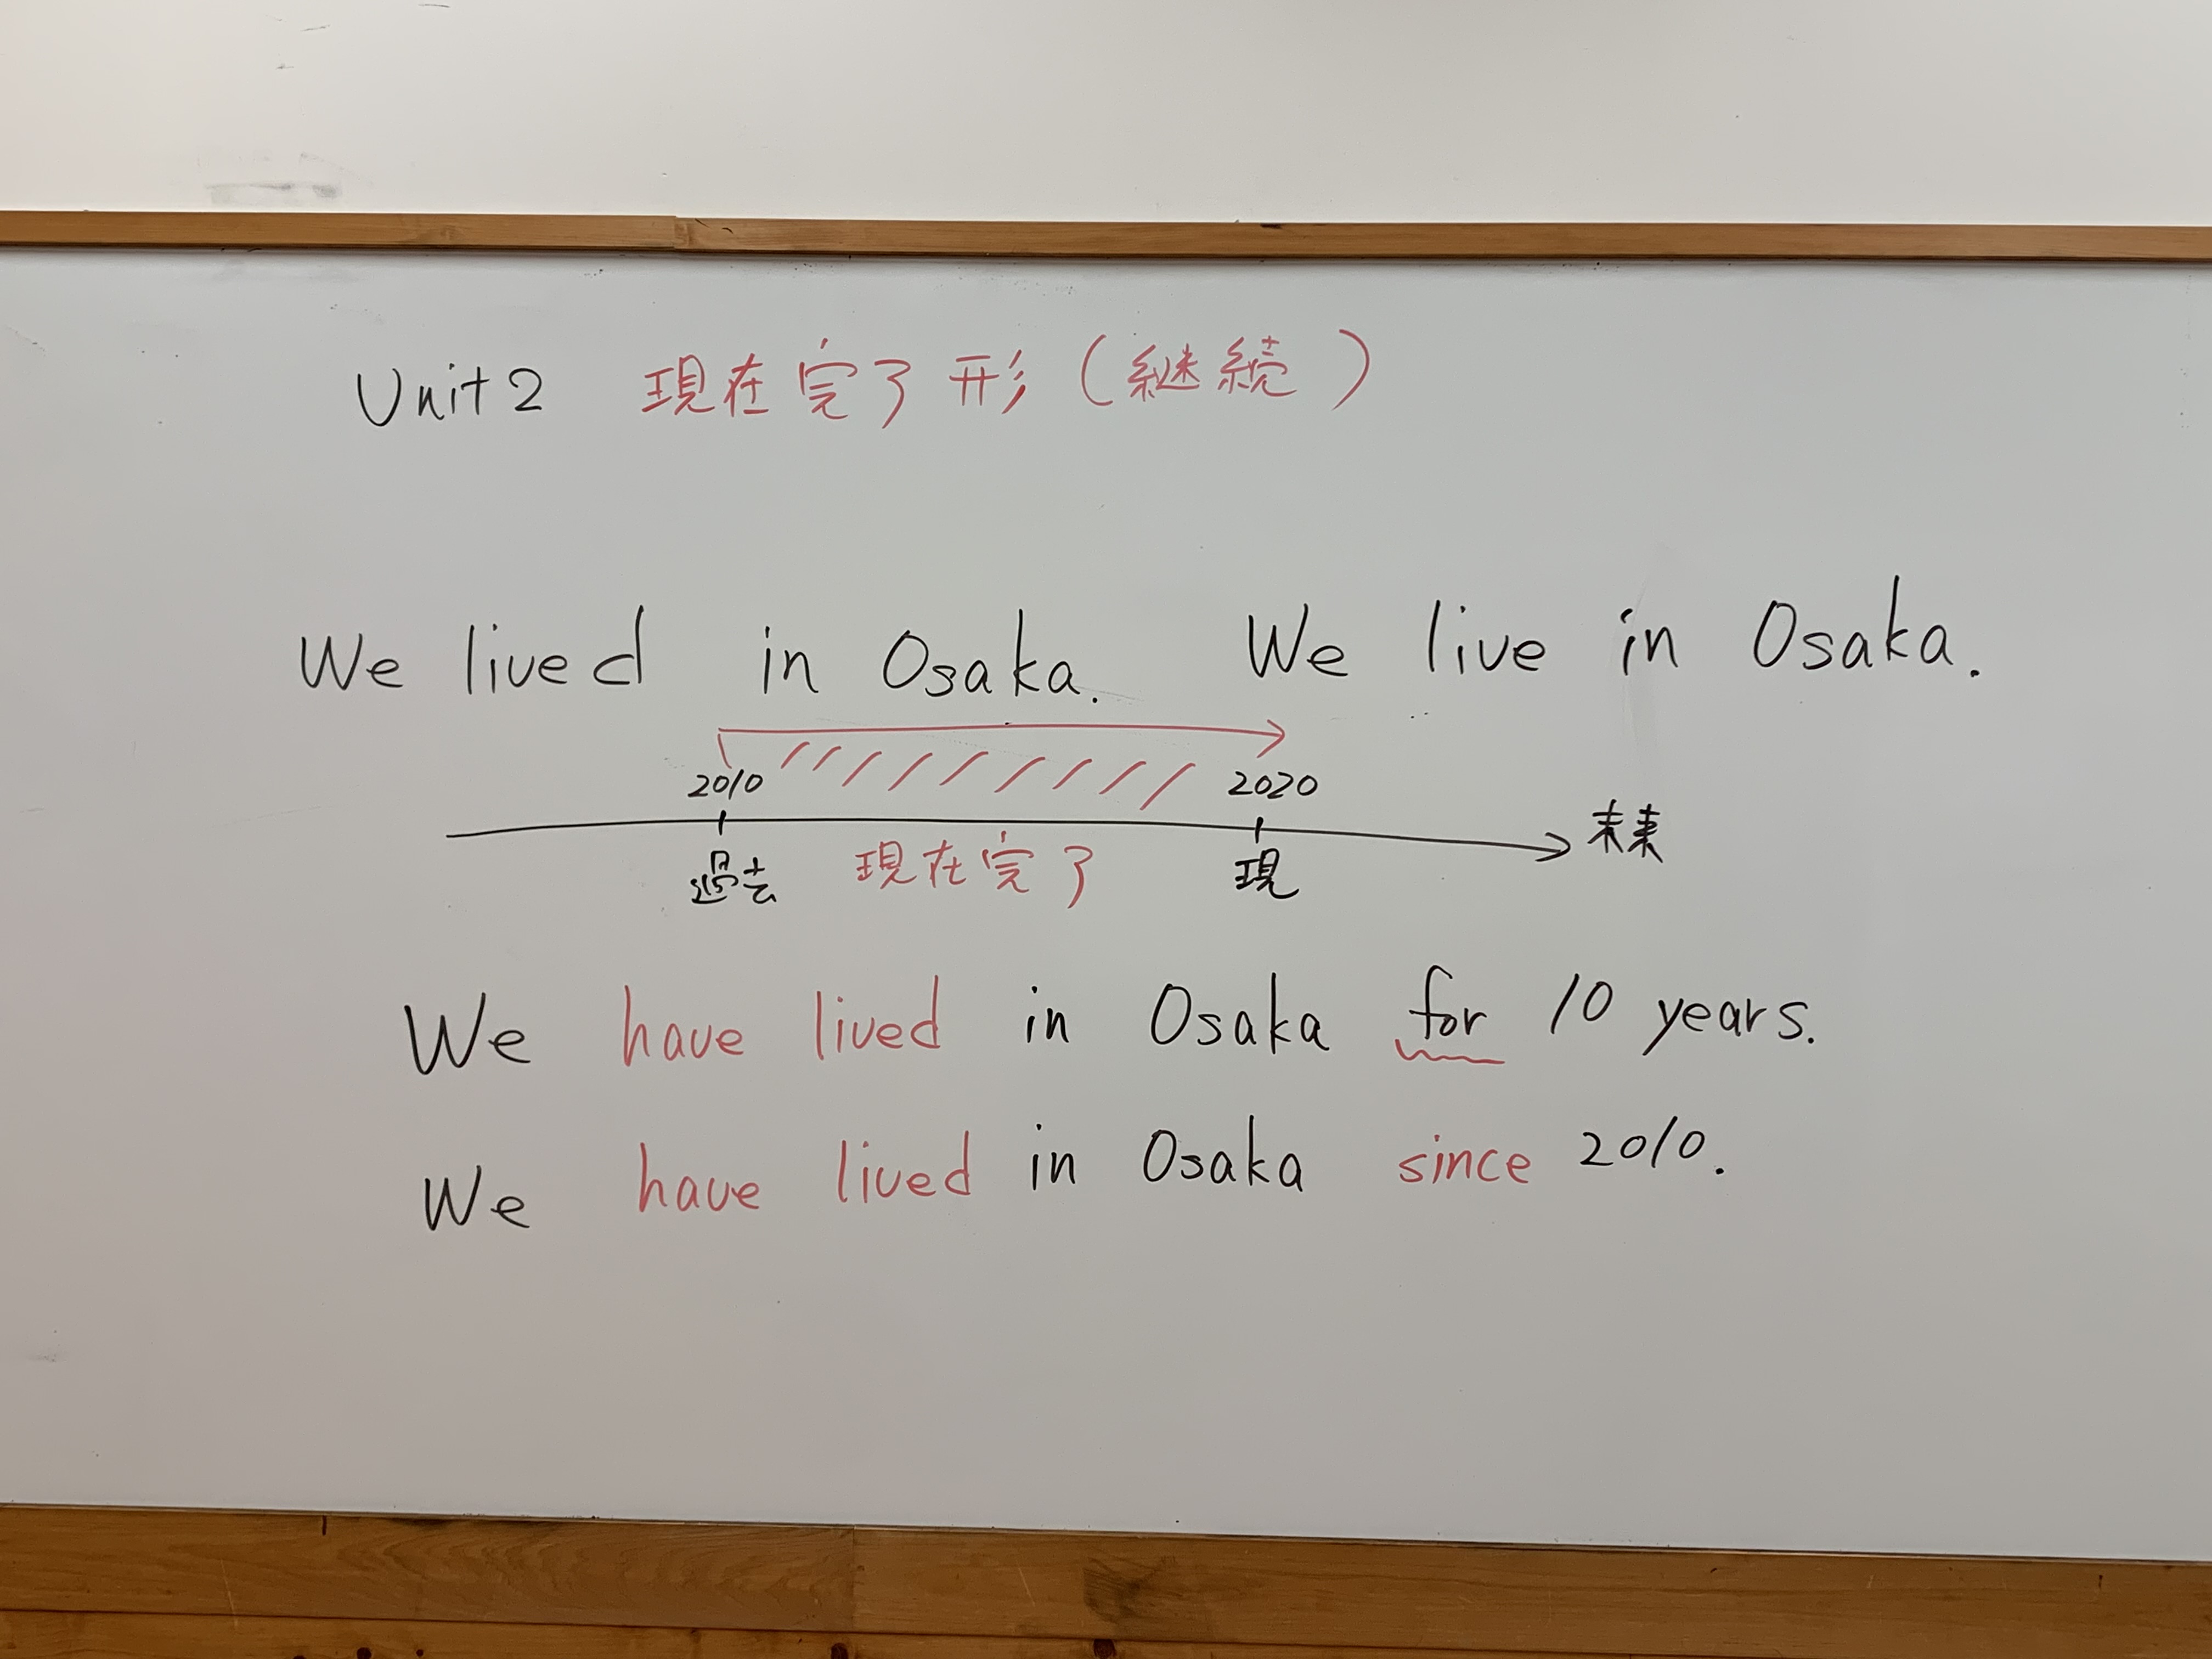 Unit 2 現在完了形（継続）
We lived in Osaka. We live in Osaka.
2010 2020
未来
過去 現在完了 現
We have lived in Osaka for 10 years.
We have lived in Osaka since 2010.